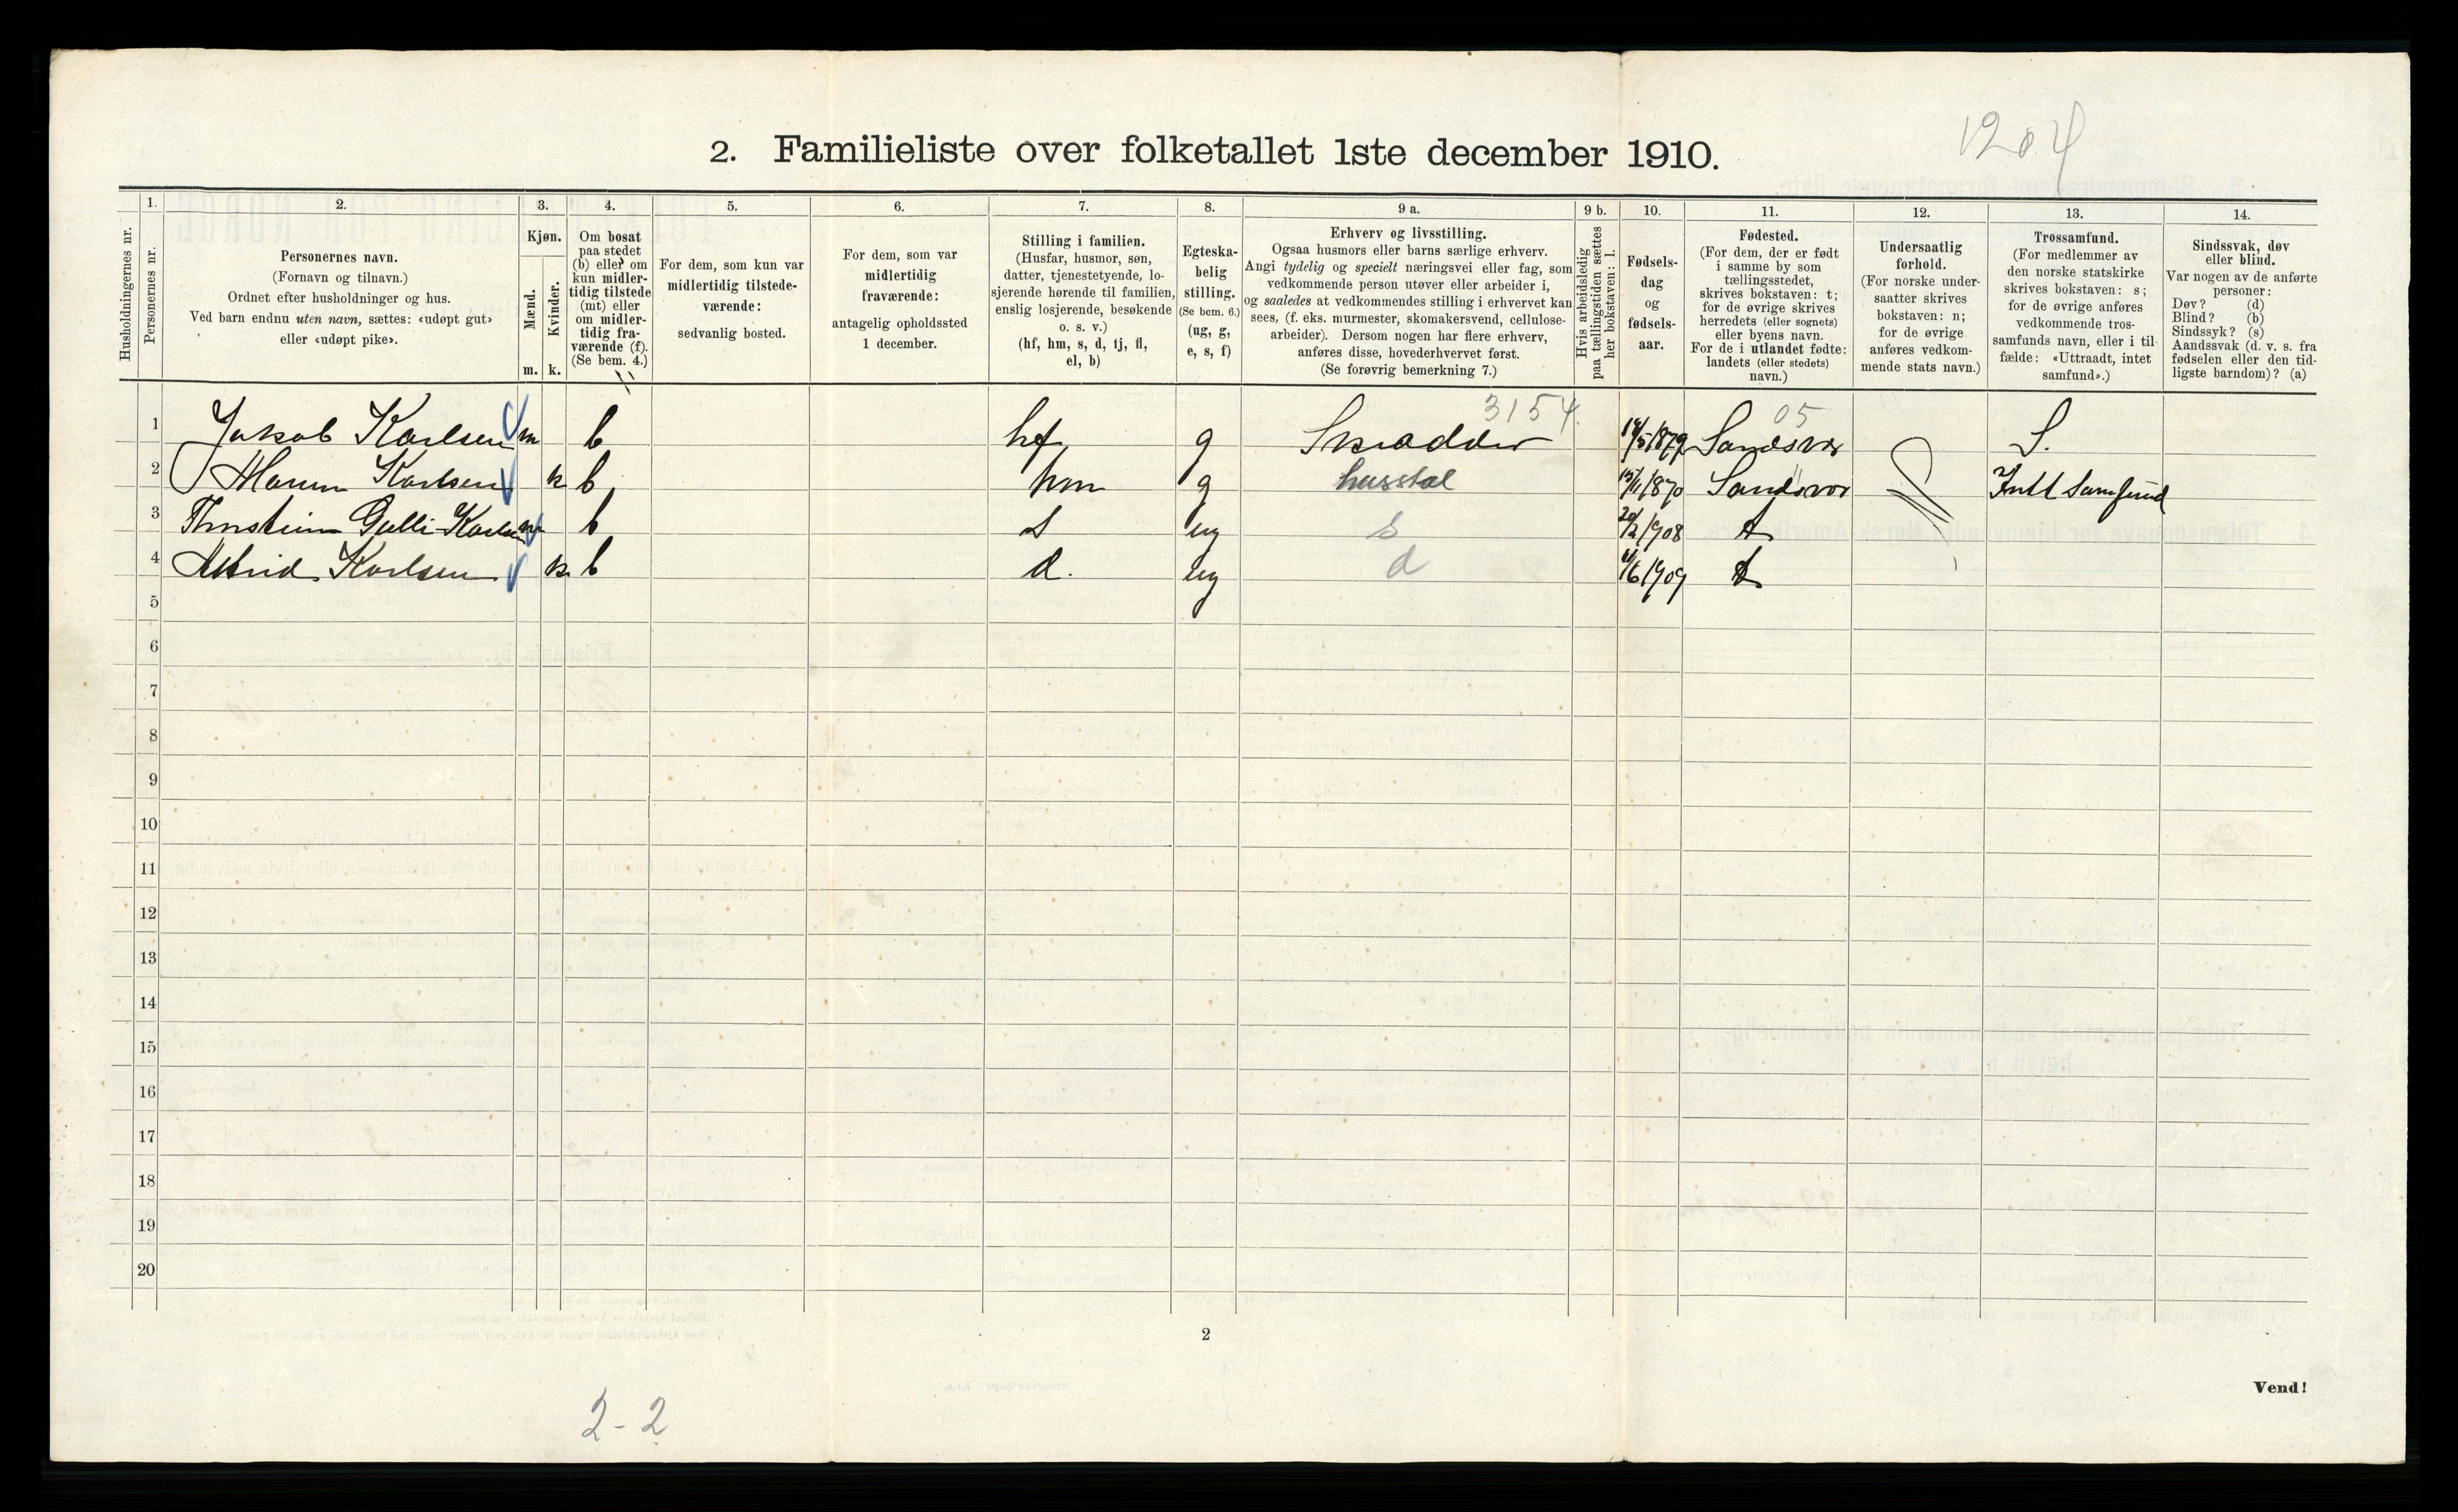 1204
2. Familieliste over folketallet 1ste december 1910.
Husholdningernes nr.
1.
Personernes nr.
2.
Personernes navn.
(Fornavn og tilnavn.)
Ordnet efter husholdninger og hus.
Ved barn endnu uten navn, sættes: «udøpt gut»
eller «udøpt pike».
3.
Kjøn.
Mænd.
Kvinder.
m.
k.
4.
Om bosat
paa stedet
(b) eller om
kun midler-
tidig tilstede
(mt) eller
om midler-
tidig fra-
værende (f).
(Se bem. 4.)
5.
For dem, som kun var
midlertidig tilstede-
værende:
sedvanlig bosted.
6.
For dem, som var
midlertidig
fraværende:
antagelig opholdssted
1 december.
7.
Stilling i familien.
(Husfar, husmor, søn,
datter, tjenestetyende, lo-
sjerende hørende til familien,
enslig losjerende, besøkende
o. s. v.)
(hf, hm, s, d, tj, fl,
el, b)
8.
Egteska-
belig
stilling.
(Se bem. 6.)
(ug, g,
e, s, f)
9 a.
Erhverv og livsstilling.
Ogsaa husmors eller barns særlige erhverv.
Angi tydelig og specielt næringsvei eller fag, som
vedkommende person utøver eller arbeider i,
og saaledes at vedkommendes stilling i erhvervet kan
sees, (f. eks. murmester, skomakersvend, cellulose-
arbeider). Dersom nogen har flere erhverv,
anføres disse, hovederhvervet først.
(Se forøvrig bemerkning 7.)
9 b.
Hvis arbeidsledig
paa tællingstiden sættes
her bokstaven: l.
10.
Fødsels-
dag
og
fødsels-
aar.
11.
Fødested.
(For dem, der er født
i samme by som
tællingsstedet,
skrives bokstaven: t;
for de øvrige skrives
herredets (eller sognets)
eller byens navn.
For de i utlandet fødte:
landets (eller stedets)
navn.)
12.
Undersaatlig
forhold.
(For norske under-
saatter skrives
bokstaven: n;
for de øvrige
anføres vedkom-
mende stats navn.)
13.
Trossamfund.
(For medlemmer av
den norske statskirke
skrives bokstaven: s;
for de øvrige anføres
vedkommende tros-
samfunds navn, eller i til-
fælde: «Uttraadt, intet
samfund».)
14.
Sindssvak, døv
eller blind.
Var nogen av de anførte
personer:
Døv? (d)
Blind? (b)
Sindssyk? (s)
Aandssvak (d. v. s. fra
fødselen eller den tid-
ligste barndom)? (a)
3154. 05
1 Jakob Karlsen m b hf g Skrædder 1879 Sandsvær S.
2 Maren Karlsen k b hm g husstel 1870 Sandsvær Intet Samfund
3 Karlsen m b s ug s 1908 t
4 Astrid Karlsen k b d. ug d 1909 t
5
6
7
8
9
10
11
12
13
14
15
16
17
18
19
20
2
Vend!
2-2